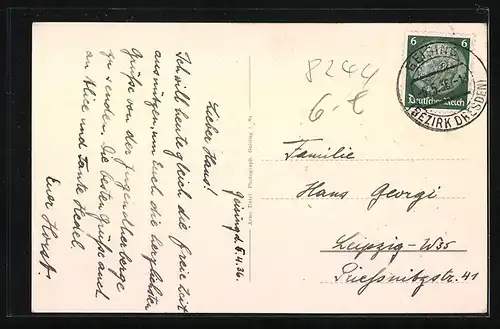 Geising d. 5.4.36.
Lieber Hans!
Ich will heute gleich die freie Zeit
ausnützen, um Euch die herzlichsten
Grüße von der Jugendherberge
zu senden. Die besten Grüße auch
an Alice und Tante Hedel.
Euer Horst.
Arno Ittel, Photograph, Geising i. Sa.
8244
6.-€
6 6
Deutsches Reich
GEISING
(BEZIRK DRESDEN)
Familie
Hans Georgi
Leipzig-W35
Prießnitzstr. 41